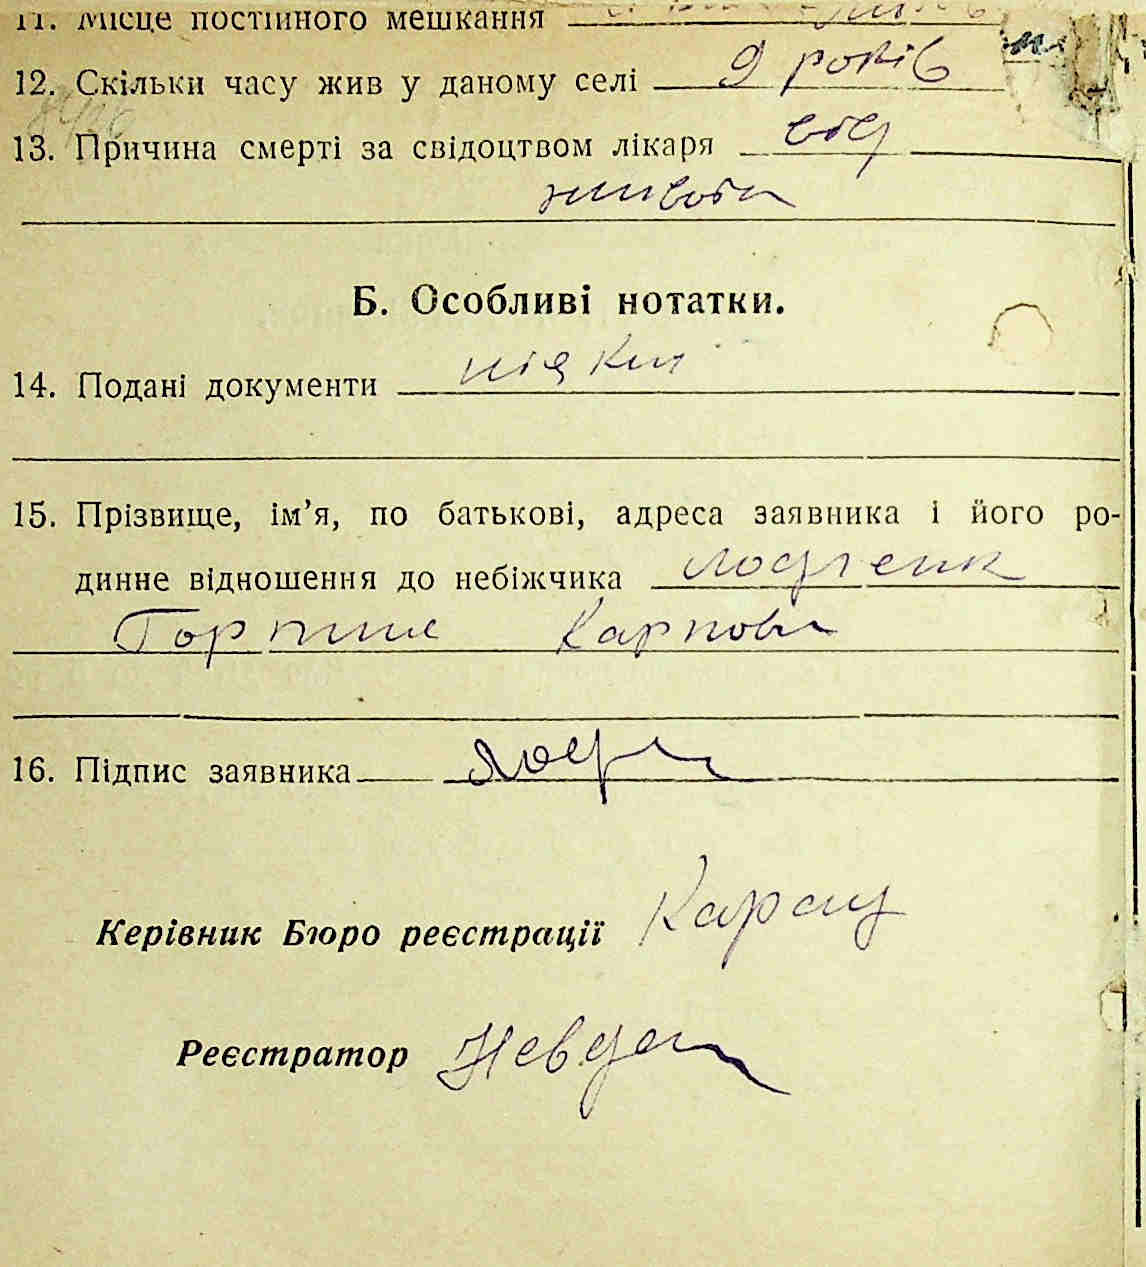 11. Місце постійного мешкання
12. Скільки часу жив у даному селі 9 років
13. Причина смерті за свідоцтвом лікаря від
живота
Б. Особливі нотатки.
14. Подані документи ніяких
15. Прізвище, ім'я, по батькові, адреса заявника і його ро-
динне відношення до небіжчика
Горпина Карповна
16. Підпис заявника
Керівник Бюро реєстрації
Реєстратор